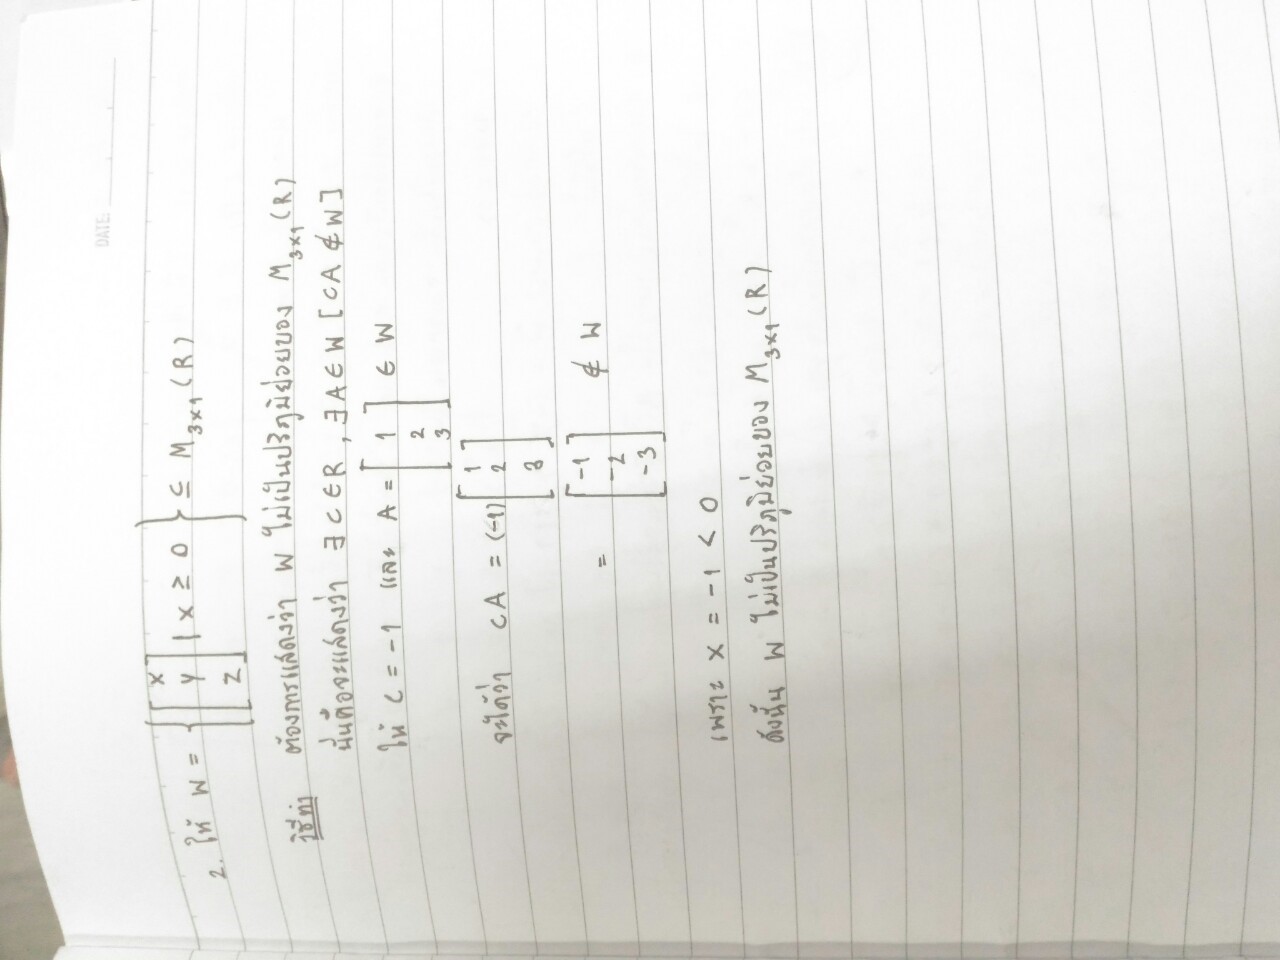 DATE:
2. ให้ W = { [ x y z ] | x ≥ 0 } ⊆ M₃ₓ₁(R)
วิธีทำ ต้องการแสดงว่า W ไม่เป็นปริภูมิย่อยของ M₃ₓ₁(R)
นั่นคือจะแสดงว่า ∃ C ∈ R , ∃ A ∈ W [ CA ∉ W ]
ให้ C = -1 และ A = [ 1 2 3 ] ∈ W
จะได้ว่า CA = (-1) [ 1 2 3 ]
= [ -1 -2 -3 ] ∉ W
เพราะ x = -1 < 0
ดังนั้น W ไม่เป็นปริภูมิย่อยของ M₃ₓ₁(R)